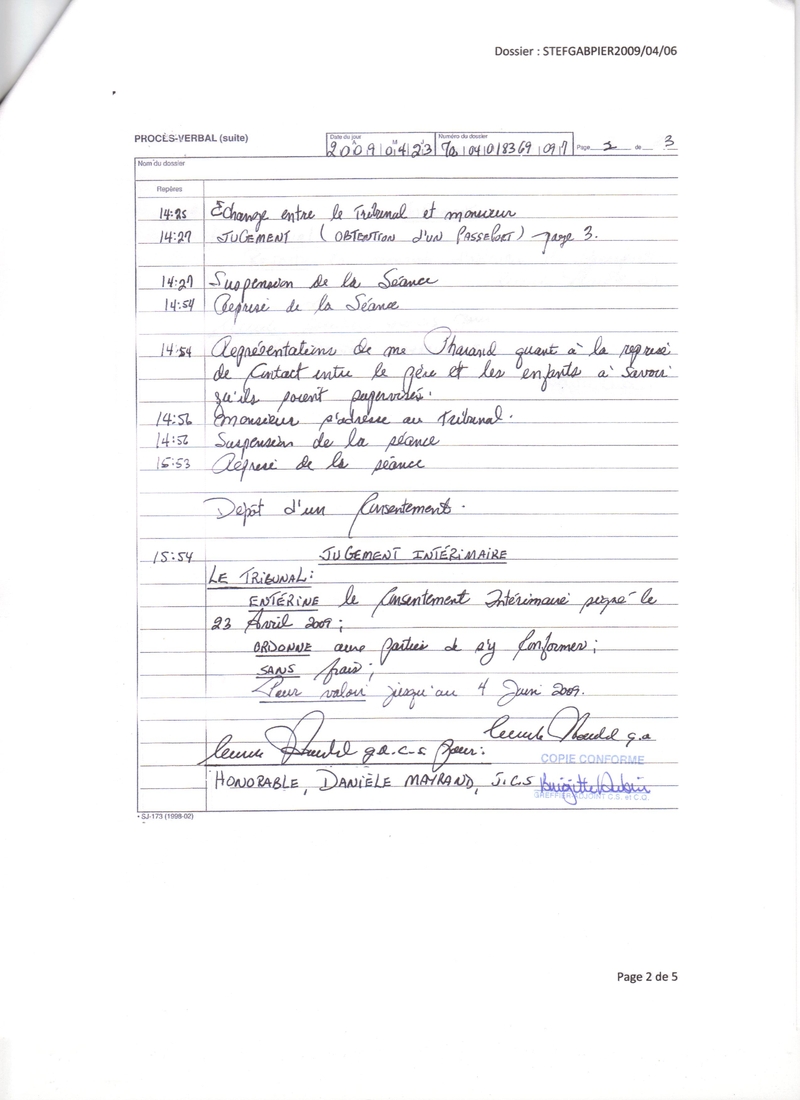 Dossier : STEFGABPIER2009/04/06
PROCÈS-VERBAL (suite)
Date du jour
A M J
2009 04 23
Numéro du dossier
04 018369 097
Page 2 de 3
Nom du dossier
Repères
14:25 Échange entre le Tribunal et monsieur
14:27 JUGEMENT (OBTENTION d'UN PASSEPORT) page 3.
14:27 Suspension de la Séance
14:54 Reprise de la Séance
14:54 Représentations de me Pharand quant à la reprise
de Contact entre le père et les enfants à savoir
qu'ils soient supervisés.
14:56 Monsieur s'adresse au Tribunal.
14:56 Suspension de la séance
15:53 Reprise de la séance
Dépôt d'un Consentement.
15:54 JUGEMENT INTÉRIMAIRE
LE TRIBUNAL:
ENTÉRINE le Consentement Intérimaire signé le
23 Avril 2009;
ORDONNE aux parties de s'y Conformer;
SANS frais;
Pour valoir jusqu'au 4 Juin 2009.
g.a
g.a.c.s pour:
COPIE CONFORME
HONORABLE, DANIÈLE MAYRAND, J.C.S
Brigitte Aubin
GREFFIER ADJOINT C.S. et C.Q.
• SJ-173 (1998-02)
Page 2 de 5